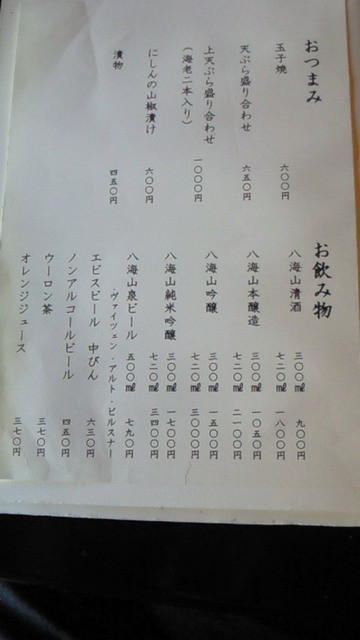 おつまみ
玉子焼 六〇〇円
天ぷら盛り合わせ 六五〇円
上天ぷら盛り合わせ
(海老二本入り) 一〇〇〇円
にしんの山椒漬け 六〇〇円
漬物 四五〇円
お飲み物
八海山清酒 三〇〇㎖ 九〇〇円
七二〇㎖ 一八〇〇円
八海山本醸造 三〇〇㎖ 一〇五〇円
七二〇㎖ 二一〇〇円
八海山吟醸 三〇〇㎖ 一五〇〇円
七二〇㎖ 三〇〇〇円
八海山純米吟醸 三〇〇㎖ 一七〇〇円
七二〇㎖ 三四〇〇円
八海山泉ビール 五〇〇㎖ 七九〇円
・ヴァイツェン・アルト・ピルスナー
エビスビール 中びん 六三〇円
ノンアルコールビール 四五〇円
ウーロン茶 三七〇円
オレンジジュース 三七〇円